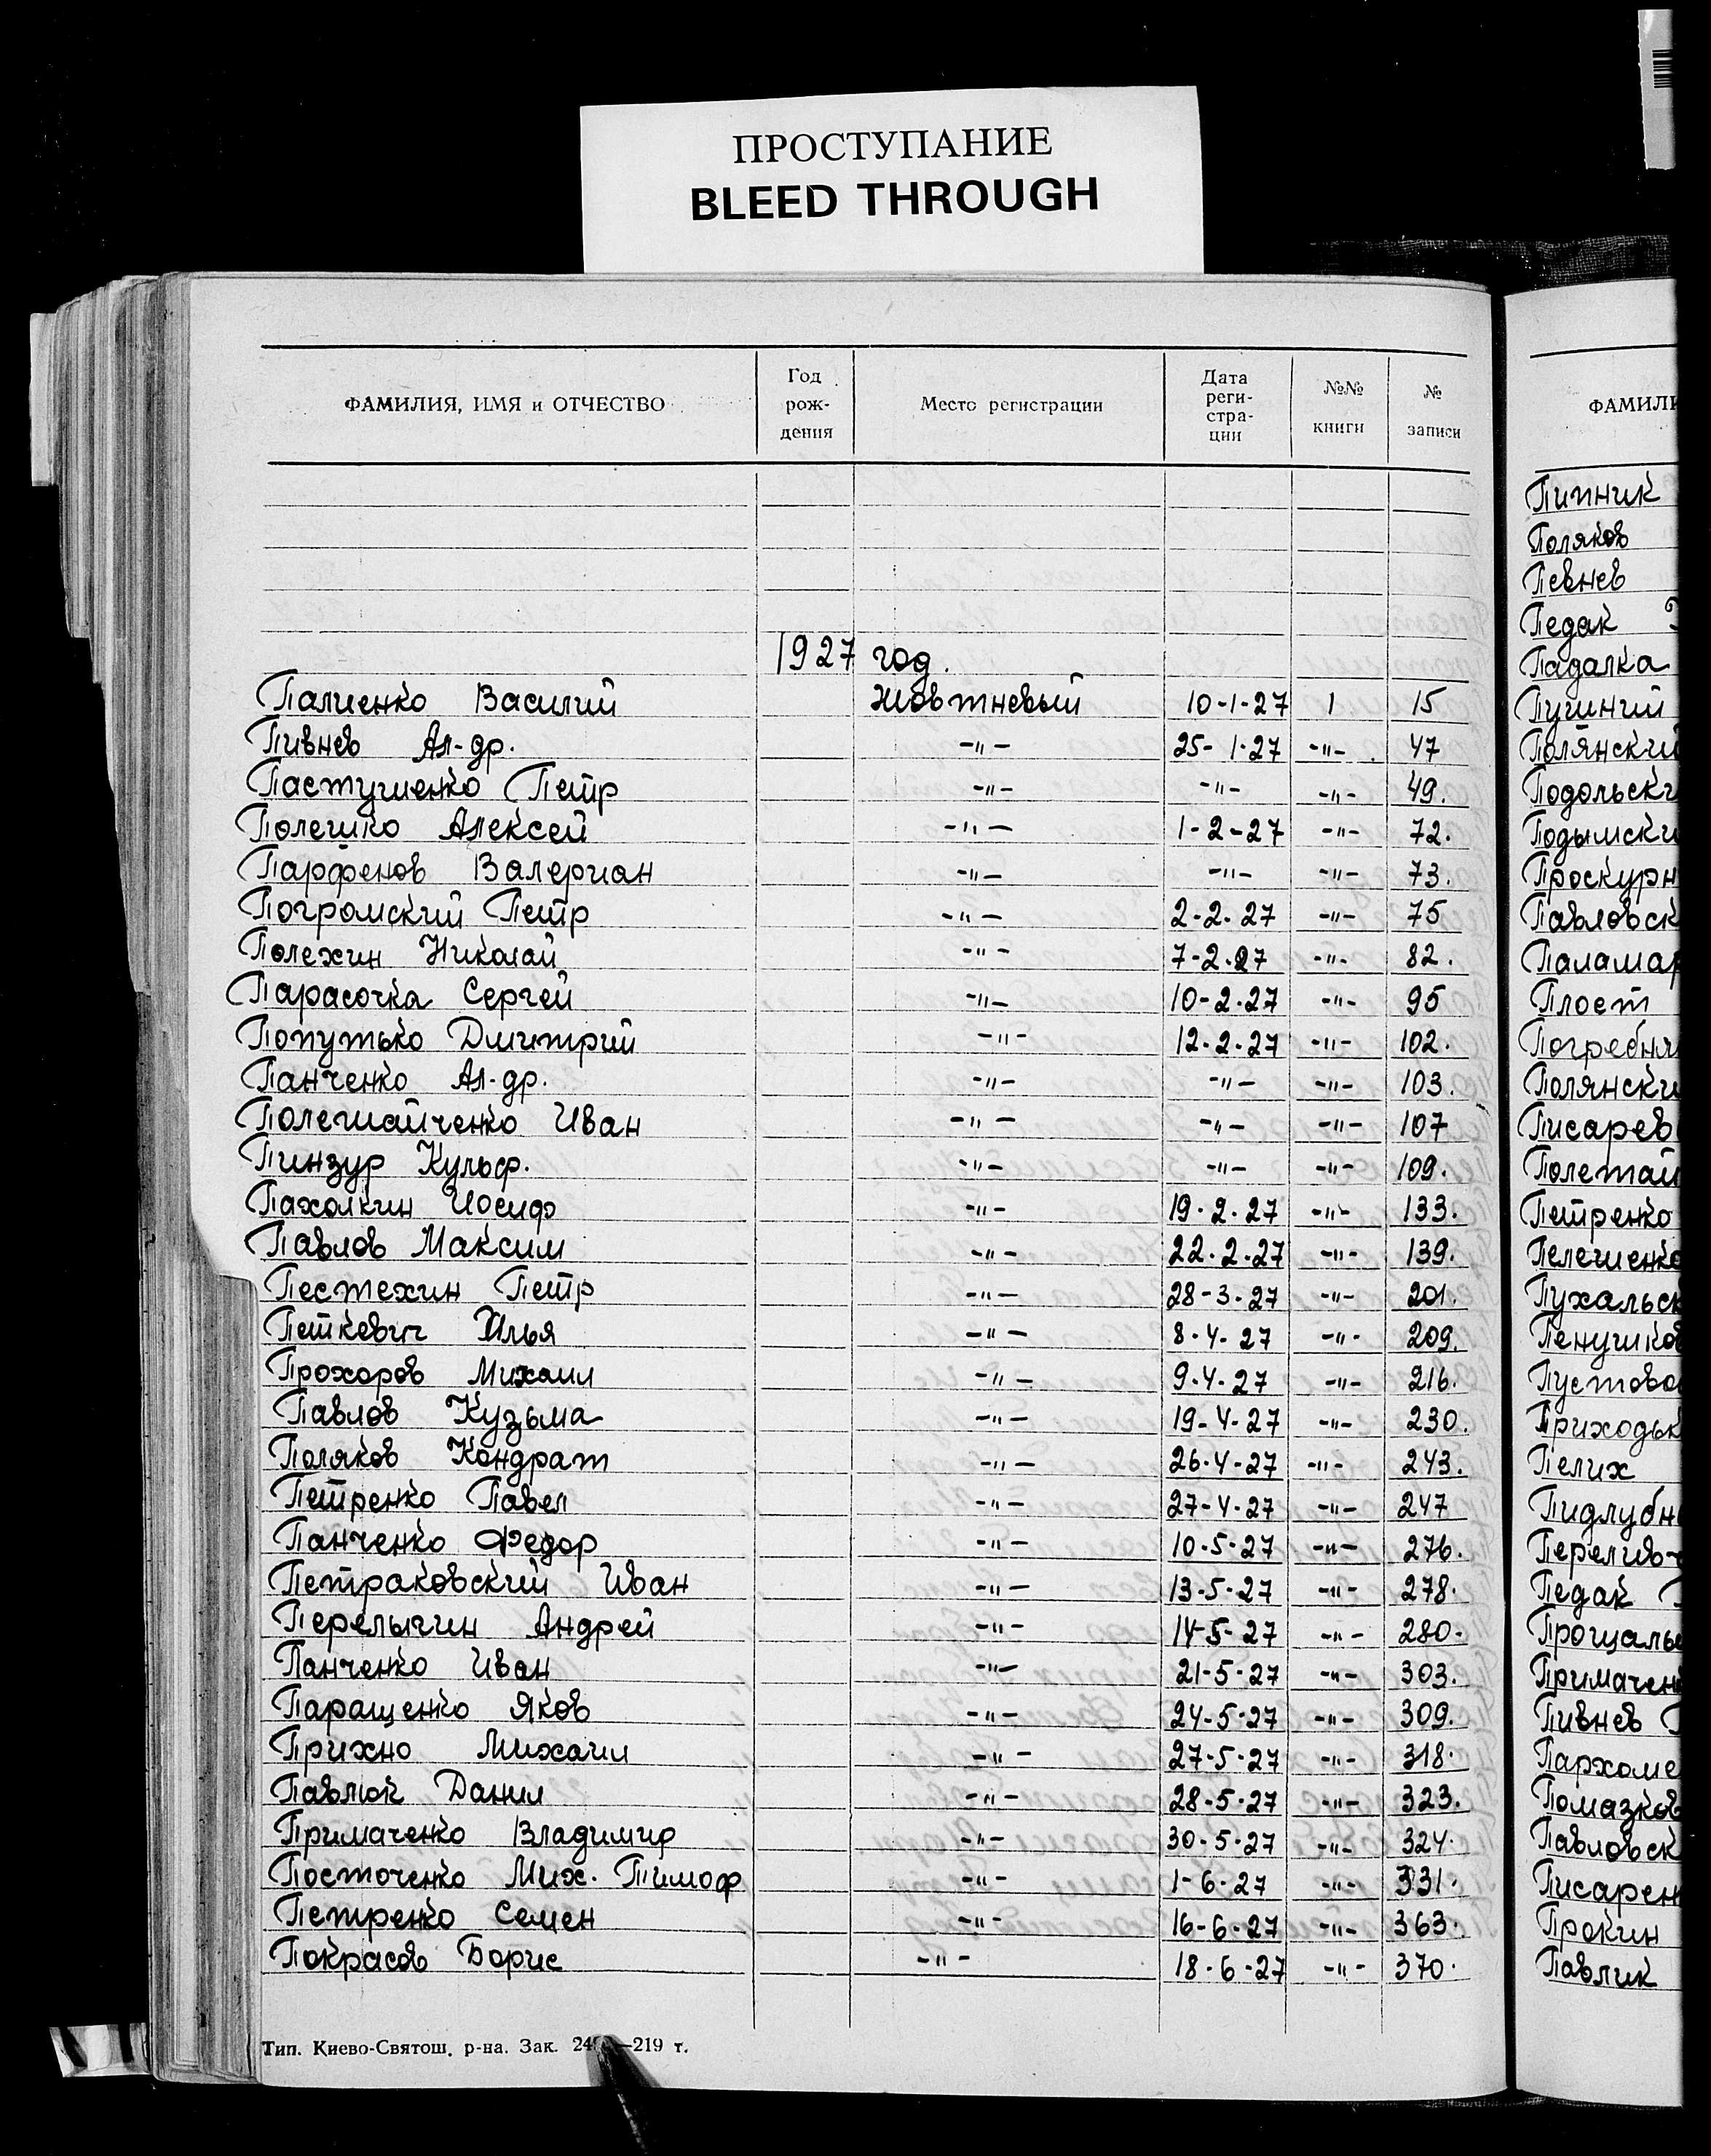 ПРОСТУПАНИЕ
BLEED THROUGH
ФАМИЛИЯ, ИМЯ и ОТЧЕСТВО Год рож- дения Место регистрации Дата реги- стра- ции №№ книги № записи
1927 год.
Палиенко Василий Жовтневый 10-1-27 1 15
Пивнев Ал-др. -"- 25-1-27 -"- 47
Пастушенко Петр -"- -"- -"- 49.
Полешко Алексей -"- 1-2-27 -"- 72.
Парфенов Валериан -"- -"- -"- 73.
Погромский Петр -"- 2-2-27 -"- 75
Полехин Николай -"- 7-2-27 -"- 82.
Парасочка Сергей -"- 10-2-27 -"- 95
Попутько Дмитрий -"- 12-2-27 -"- 102.
Панченко Ал-др. -"- -"- -"- 103.
Полешайченко Иван -"- -"- -"- 107
Пинзур Кульф. -"- -"- -"- 109.
Пахолкин Иосиф -"- 19-2-27 -"- 133.
Павлов Максим -"- 22-2-27 -"- 139.
Пестехин Петр -"- 28-3-27 -"- 201.
Петкевич Илья -"- 8-4-27 -"- 209.
Прохоров Михаил -"- 9-4-27 -"- 216.
Павлов Кузьма -"- 19-4-27 -"- 230.
Поляков Кондрат -"- 26-4-27 -"- 243.
Петренко Павел -"- 27-4-27 -"- 247
Панченко Федор -"- 10-5-27 -"- 276.
Петраковский Иван -"- 13-5-27 -"- 278.
Перелыгин Андрей -"- 14-5-27 -"- 280.
Панченко Иван -"- 21-5-27 -"- 303.
Паращенко Яков -"- 24-5-27 -"- 309.
Прихно Михаил -"- 27-5-27 -"- 318.
Павлюк Данил -"- 28-5-27 -"- 323.
Примаченко Владимир -"- 30-5-27 -"- 324.
Посточенко Мих. Тимоф -"- 1-6-27 -"- 331.
Петренко Семен -"- 16-6-27 -"- 363.
Покрасов Борис -"- 18-6-27 -"- 370.
Тип. Киево-Святош. р-на. Зак. —219 т.
ФАМИЛИ
Пипник
Поляков
Певнев
Педак
Падалка
Полянский
Подольски
Подымски
Проскурн
Павловск
Паламар
Плост
Погребня
Полянски
Писарев
Полетай
Петренко
Пелешенко
Пухальск
Пенушков
Пустово
Приходьк
Пелих
Пидлубн
Перелив
Педак
Прощаль
Примачен
Пивнев
Пархоме
Помазков
Павловск
Писарен
Прокин
Павлик